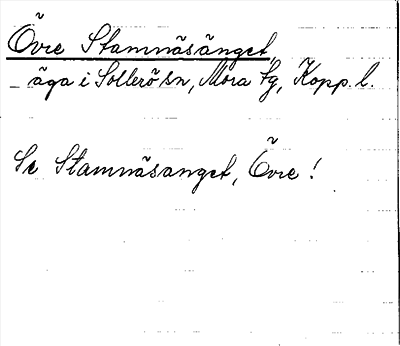 Övre Stamnäsänget,
äga i Sollerö sn, Mora tg, Kopp. l.
Se Stamnäsanget, Övre!